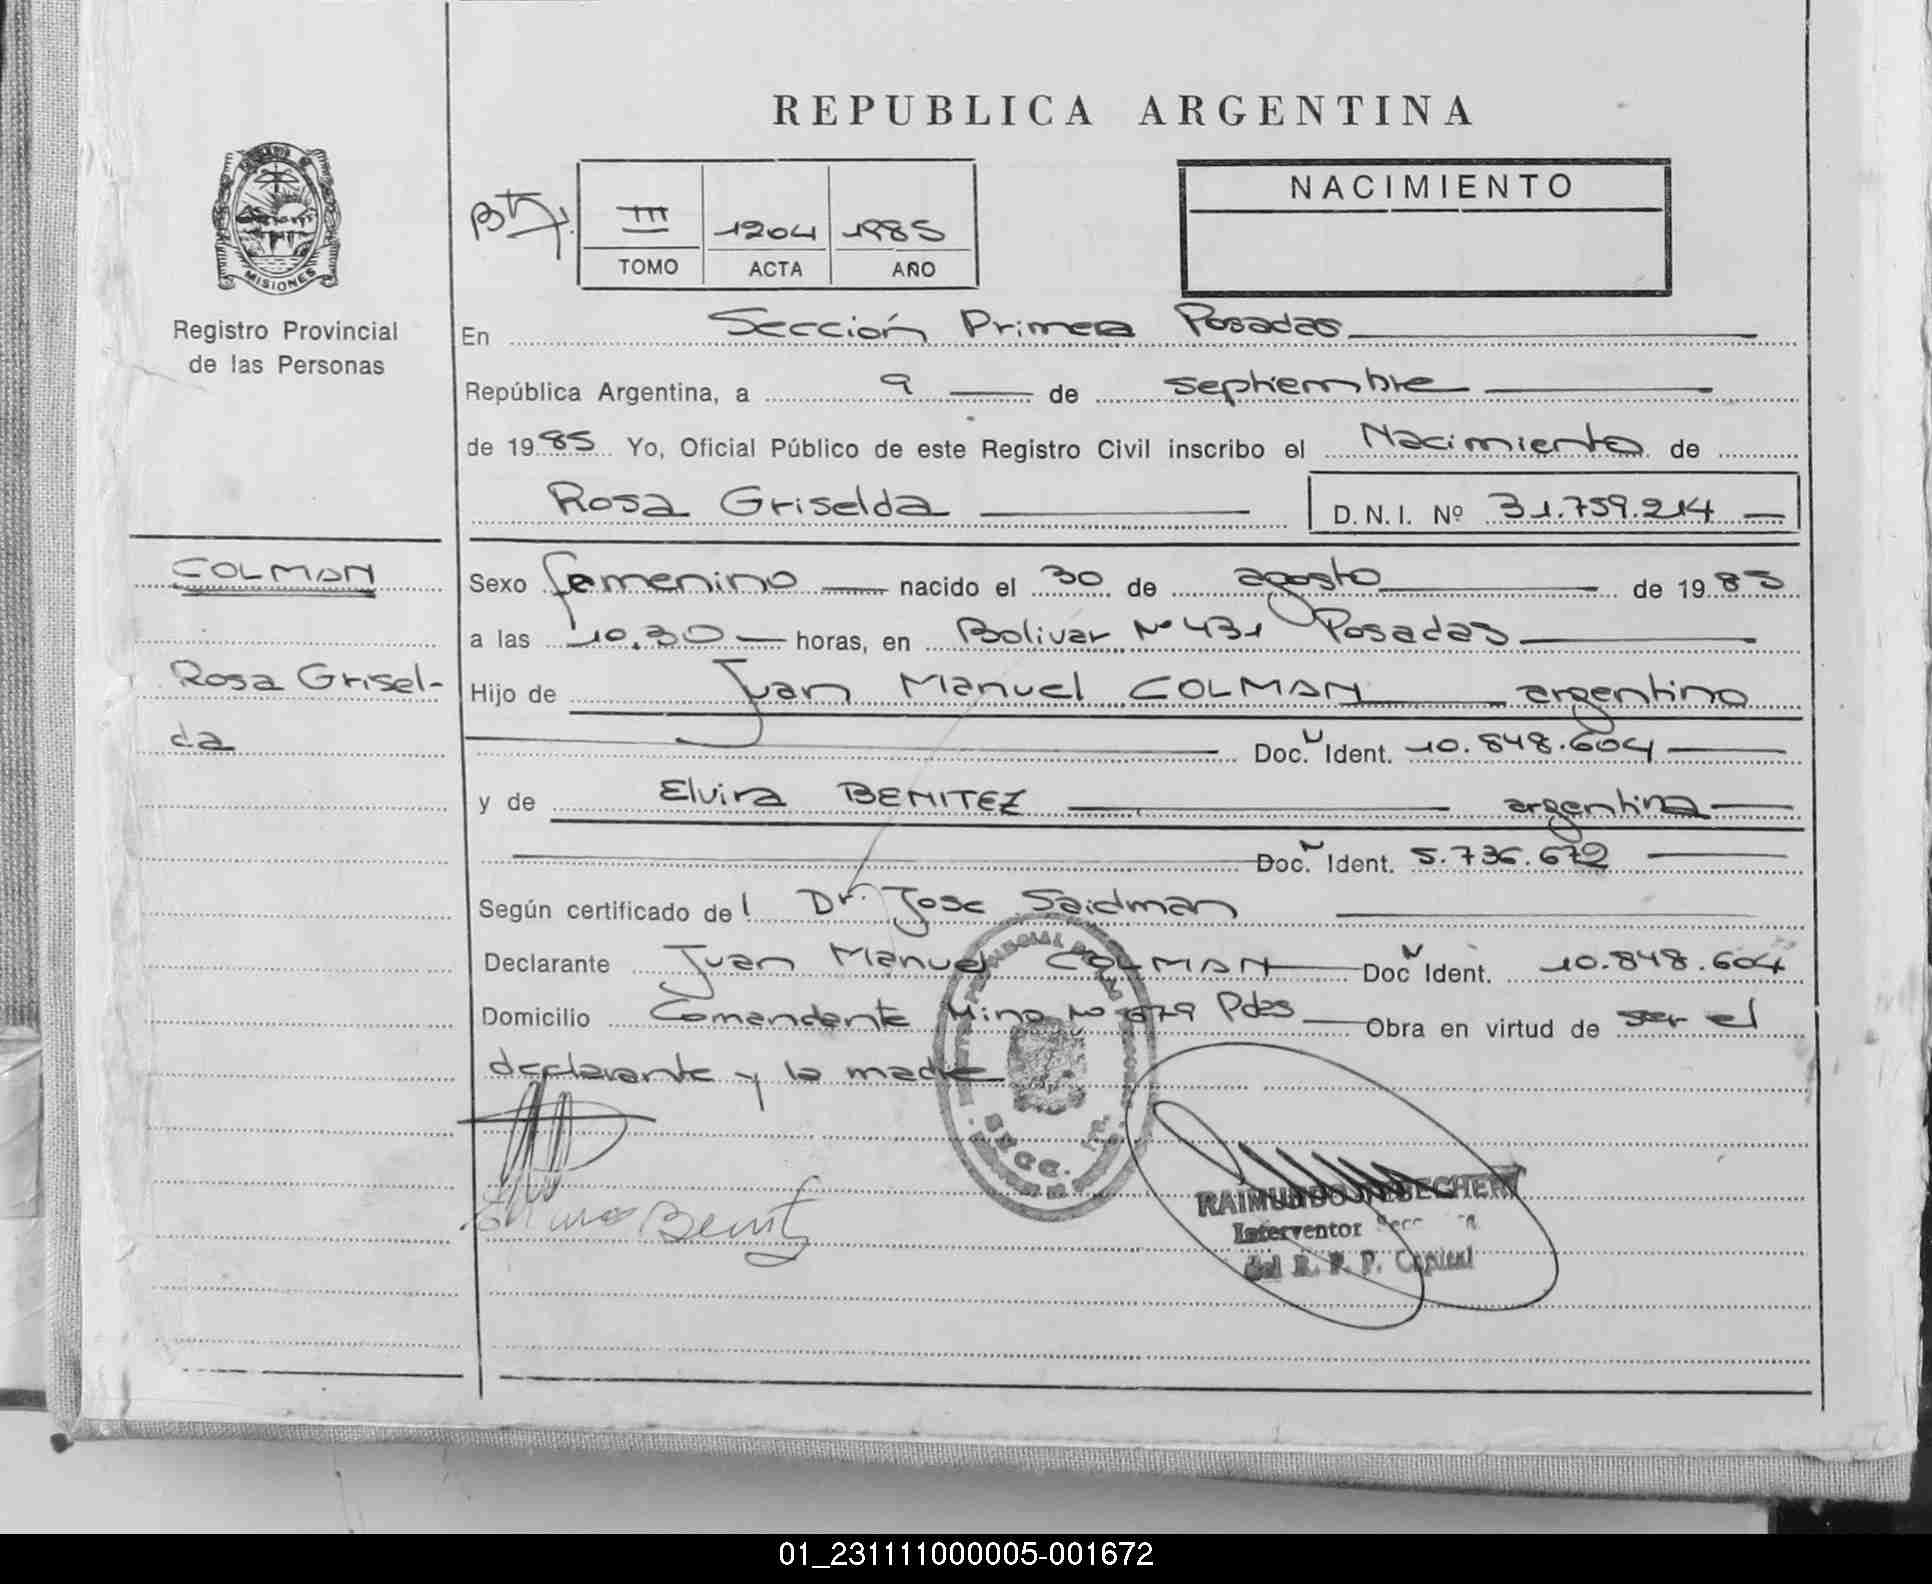 REPUBLICA ARGENTINA
MISIONES
Registro Provincial
de las Personas
III 1204 1985
TOMO ACTA AÑO
NACIMIENTO
En Sección Primera Posadas
República Argentina, a 9 de septiembre
de 1985 Yo, Oficial Público de este Registro Civil inscribo el Nacimiento de
Rosa Griselda D.N.I. Nº 31.759.214
COLMAN
Rosa Grisel-
da
Sexo femenino nacido el 30 de agosto de 1985
a las 10.30 horas, en Bolivar Nº 431 Posadas
Hijo de Juan Manuel COLMAN argentino
Doc. Ident. 10.848.604
y de Elvira BENITEZ argentina
Doc. Ident. 5.736.672
Según certificado del Dr. Jose Saidman
Declarante Juan Manuel COLMAN Doc Ident. 10.848.604
Domicilio Comandante Mino Nº 679 Pdas Obra en virtud de ser el
declarante y la madre
Benitez
RAIMUNDO
Interventor
del R. P. P. Capital
01_231111000005-001672